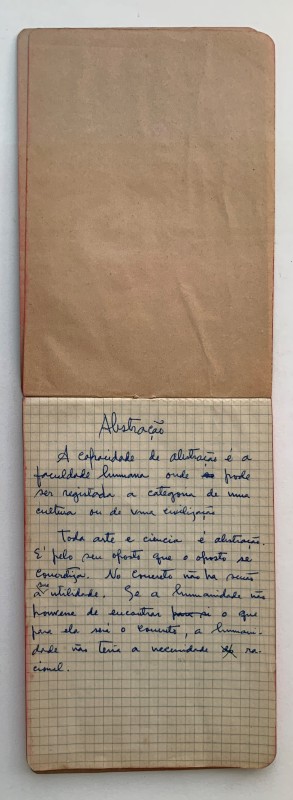 Abstração
A capacidade de abstração é a
faculdade humana onde pode
ser a categoria de uma
cultura ou de uma civilização
Toda arte e ciencia é abstração.
E' pelo seu oposto que o oposto se
No concreto não ha senão
a utilidade. Se a humanidade não
de encontrar o que
para ela seri o concreto, a humani-
dade não teria a necessidade ra-
cional.